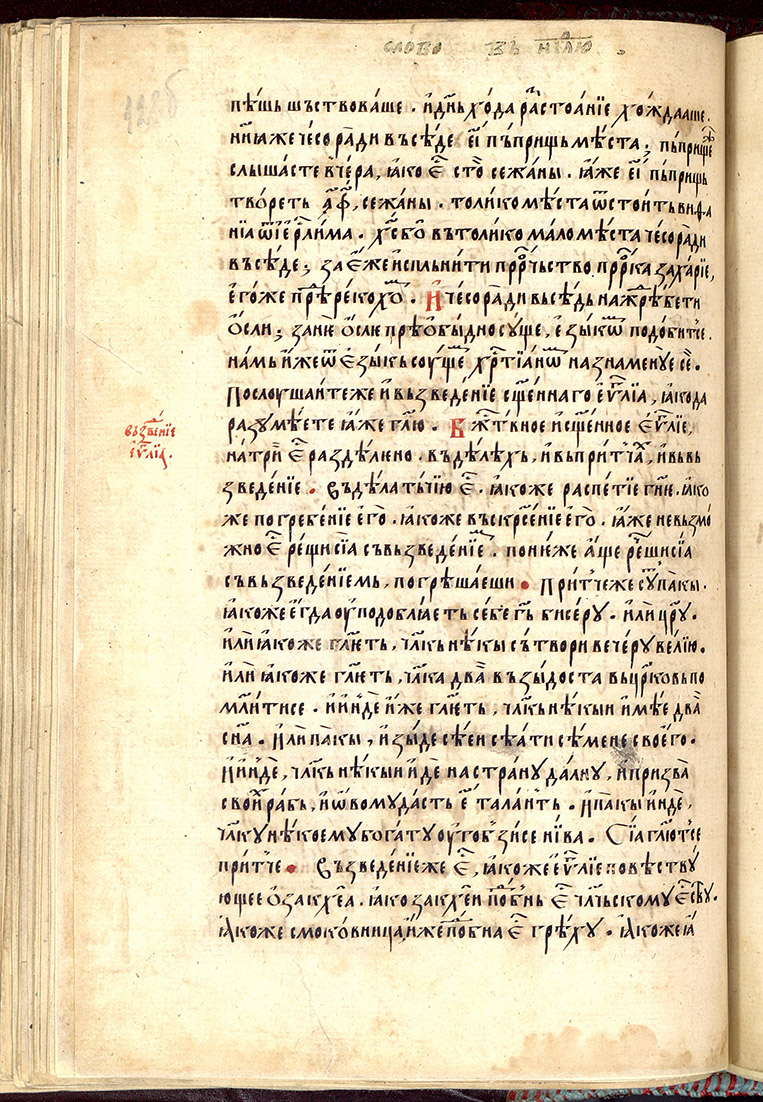 слово въ нл҃ю
пѣшь шъствоваше . и҆ дн҃ь хо́да ра́стоа́нїе хо́ждааше.
нн҃ꙗ же чесо ра́ди въсѣ́де еі҃ пъ́прищь мѣ́ста ; пъ́прище же
слы́шасте вче́ра, ꙗ҆́ко є҆с҃ сто̀ сежа́ны . ꙗ҆́же еі҃ пъ́прищь
тво́реть ҂а҃ф҃, сежа́ны . толи́ко мѣ́ста ѿстои́ть виѳа
нїа ѿ і҆єрⷭ҇ли́ма . хс҃ бо̀ въ толи́ко мало мѣ́ста чесо ра́ди
въсѣ́де ; за є҆́же и҆спльни́ти прⷪ҇рчьство прⷪ҇рка заха́рїе,
є҆го́же прѣ́ре́кохⷨо . И҆ че́со ра́ди въсѣ́дь на жрѣ́бети
ѻ҆́сли ; зане́ ѻ҆сле прѣѡбы́дно су́ще, є҆зы́кⷨѡ подо́битсе.
на́мь и҆́же ѿ є҆зы́кь соу́щеⷨ хрⷭ҇тїа́нⷨѡ назнамену́е се́ .
Послоу́шаите же и҆ възведе́нїе сщ҃е́ннаго є҆ѵⷢ҇лїа, ꙗ҆́ко да
разумѣ́ете ꙗ҆́же гл҃ю . Бжⷭ҇тв́ное и҆ сщ҃е́нное є҆ѵⷢ҇лїе,
на трѝ є҆с҃ раздѣле́но . въ дѣ́лѣхъ, и҆ въ при́тчаⷯ, и҆ въ въ
зведе́нїе . Въ дѣ́ла тъ́чїю є҆с҃ . ꙗ҆́коже распе́тїе гн҃е . ꙗ҆́ко
же погребе́нїе є҆го̀ . ꙗ҆́коже въскрⷭ҇се́нїе є҆го̀ . ꙗ҆́же невъзмо́
жно є҆с҃ рещи сїа̀ съ възведе́нїеⷨ . поне́же а҆́ще рⷱе́ши сїа̀
съ възведе́нїемь, погрѣша́еши . При́тче же су́ть па́кы .
ꙗ҆́коже є҆гда̀ оу҆подоблꙗ́еть се́бе гь҃ би́серу . и҆лѝ цр҃у .
и҆лѝ ꙗ҆́коже гл҃еть, чл҃кь нѣ́кы сътворѝ вече́ру ве́лїю .
и҆лѝ ꙗ҆́коже гл҃еть, чл҃ка два̀ възы́доста въ цр҃ковь по
мл҃и́тисе . и҆ и҆нде́ и҆́же гл҃еть, чл҃кь нѣ́кыи и҆мѣ́е два̀
сн҃а . И҆лѝ па́кы, и҆зы́де сѣ́еи сѣ́ати сѣ́мене свое́го .
И҆ и҆́нде, чл҃кь нѣ́кыи и҆́де на страну̀ да́лну, и҆ призва̀
свои́ⷯ ра́бь, и҆ ѡ҆вому да́сть є҃ тала́нть . И҆ па́кы и҆нде́,
чл҃ку нѣ́коему бога́ту оу҆гобзи́се ни́ва . Сїа̀ гл҃ютсе
при́тче . Възведе́нїе же є҆с҃, ꙗ҆́коже є҆ѵⷢ҇лїе повѣ́ству́
ющее ѻ҆ закхе́а . ꙗ҆́ко закхе́и подⷪ҇бнь є҆с҃ чл҃чьскому є҆сⷭ҇тву .
ꙗ҆́коже смоко́вница и҆́же подⷪ҇бна є҆с҃ грѣ́ху . ꙗ҆́коже ꙗ҆́
възведе́нїе
є҆ѵⷢ҇лїа .